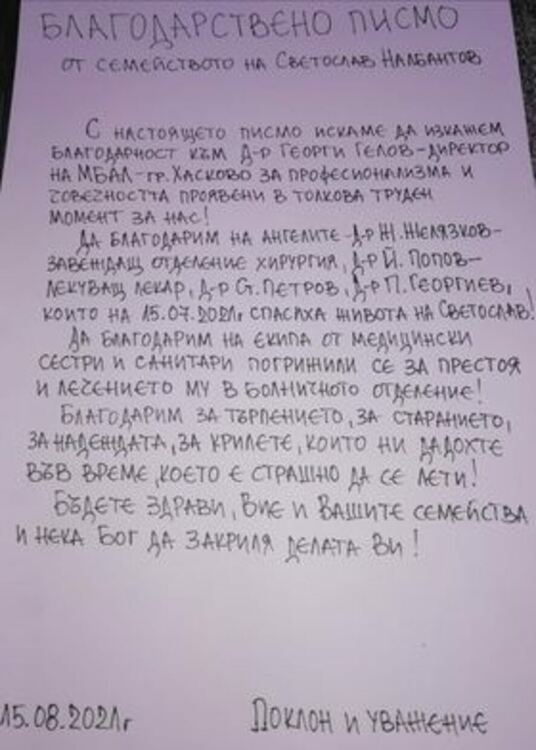 БЛАГОДАРСТВЕНО ПИСМО
ОТ СЕМЕЙСТВОТО НА СВЕТОСЛАВ НАЛБАНТОВ
С НАСТОЯЩЕТО ПИСМО ИСКАМЕ ДА ИЗКАЖЕМ
БЛАГОДАРНОСТ КЪМ Д-Р ГЕОРГИ ГЕЛОВ-ДИРЕКТОР
НА МБАЛ-ГР. ХАСКОВО ЗА ПРОФЕСИОНАЛИЗМА И
ЧОВЕЧНОСТТА ПРОЯВЕНИ В ТОЛКОВА ТРУДЕН
МОМЕНТ ЗА НАС!
ДА БЛАГОДАРИМ НА АНГЕЛИТЕ-Д-Р Ж. ЖЕЛЯЗКОВ-
ЗАВЕЖДАЩ ОТДЕЛЕНИЕ ХИРУРГИЯ, Д-Р Й. ПОПОВ-
ЛЕКУВАЩ ЛЕКАР, Д-Р СТ. ПЕТРОВ, Д-Р П. ГЕОРГИЕВ,
КОИТО НА 15.07.2021г СПАСИХА ЖИВОТА НА СВЕТОСЛАВ!
ДА БЛАГОДАРИМ НА ЕКИПА ОТ МЕДИЦИНСКИ
СЕСТРИ И САНИТАРИ ПОГРИЖИЛИ СЕ ЗА ПРЕСТОЯ
И ЛЕЧЕНИЕТО МУ В БОЛНИЧНОТО ОТДЕЛЕНИЕ!
БЛАГОДАРИМ ЗА ТЪРПЕНИЕТО, ЗА СТАРАНИЕТО,
ЗА НАДЕЖДАТА, ЗА КРИЛЕТЕ, КОИТО НИ ДАДОХТЕ
ВЪВ ВРЕМЕ, КОЕТО Е СТРАШНО ДА СЕ ЛЕТИ!
БЪДЕТЕ ЗДРАВИ, ВИЕ И ВАШИТЕ СЕМЕЙСТВА
И НЕКА БОГ ДА ЗАКРИЛЯ ДЕЛАТА ВИ!
15.08.2021г ПОКЛОН И УВАЖЕНИЕ